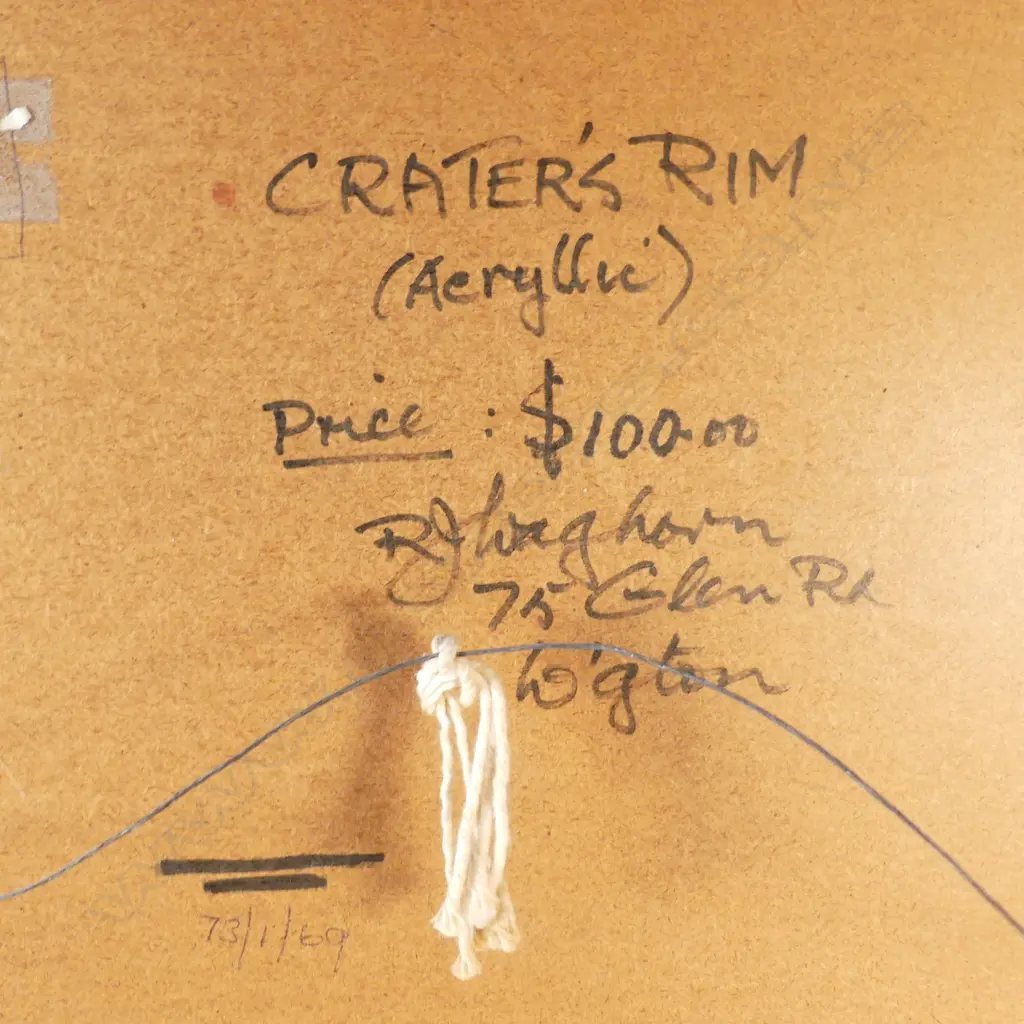 CRATER'S RIM
(Acryllic)
Price : $100.00
RJ Waghorn
75 Glen Rd
W'gton
73/1/69